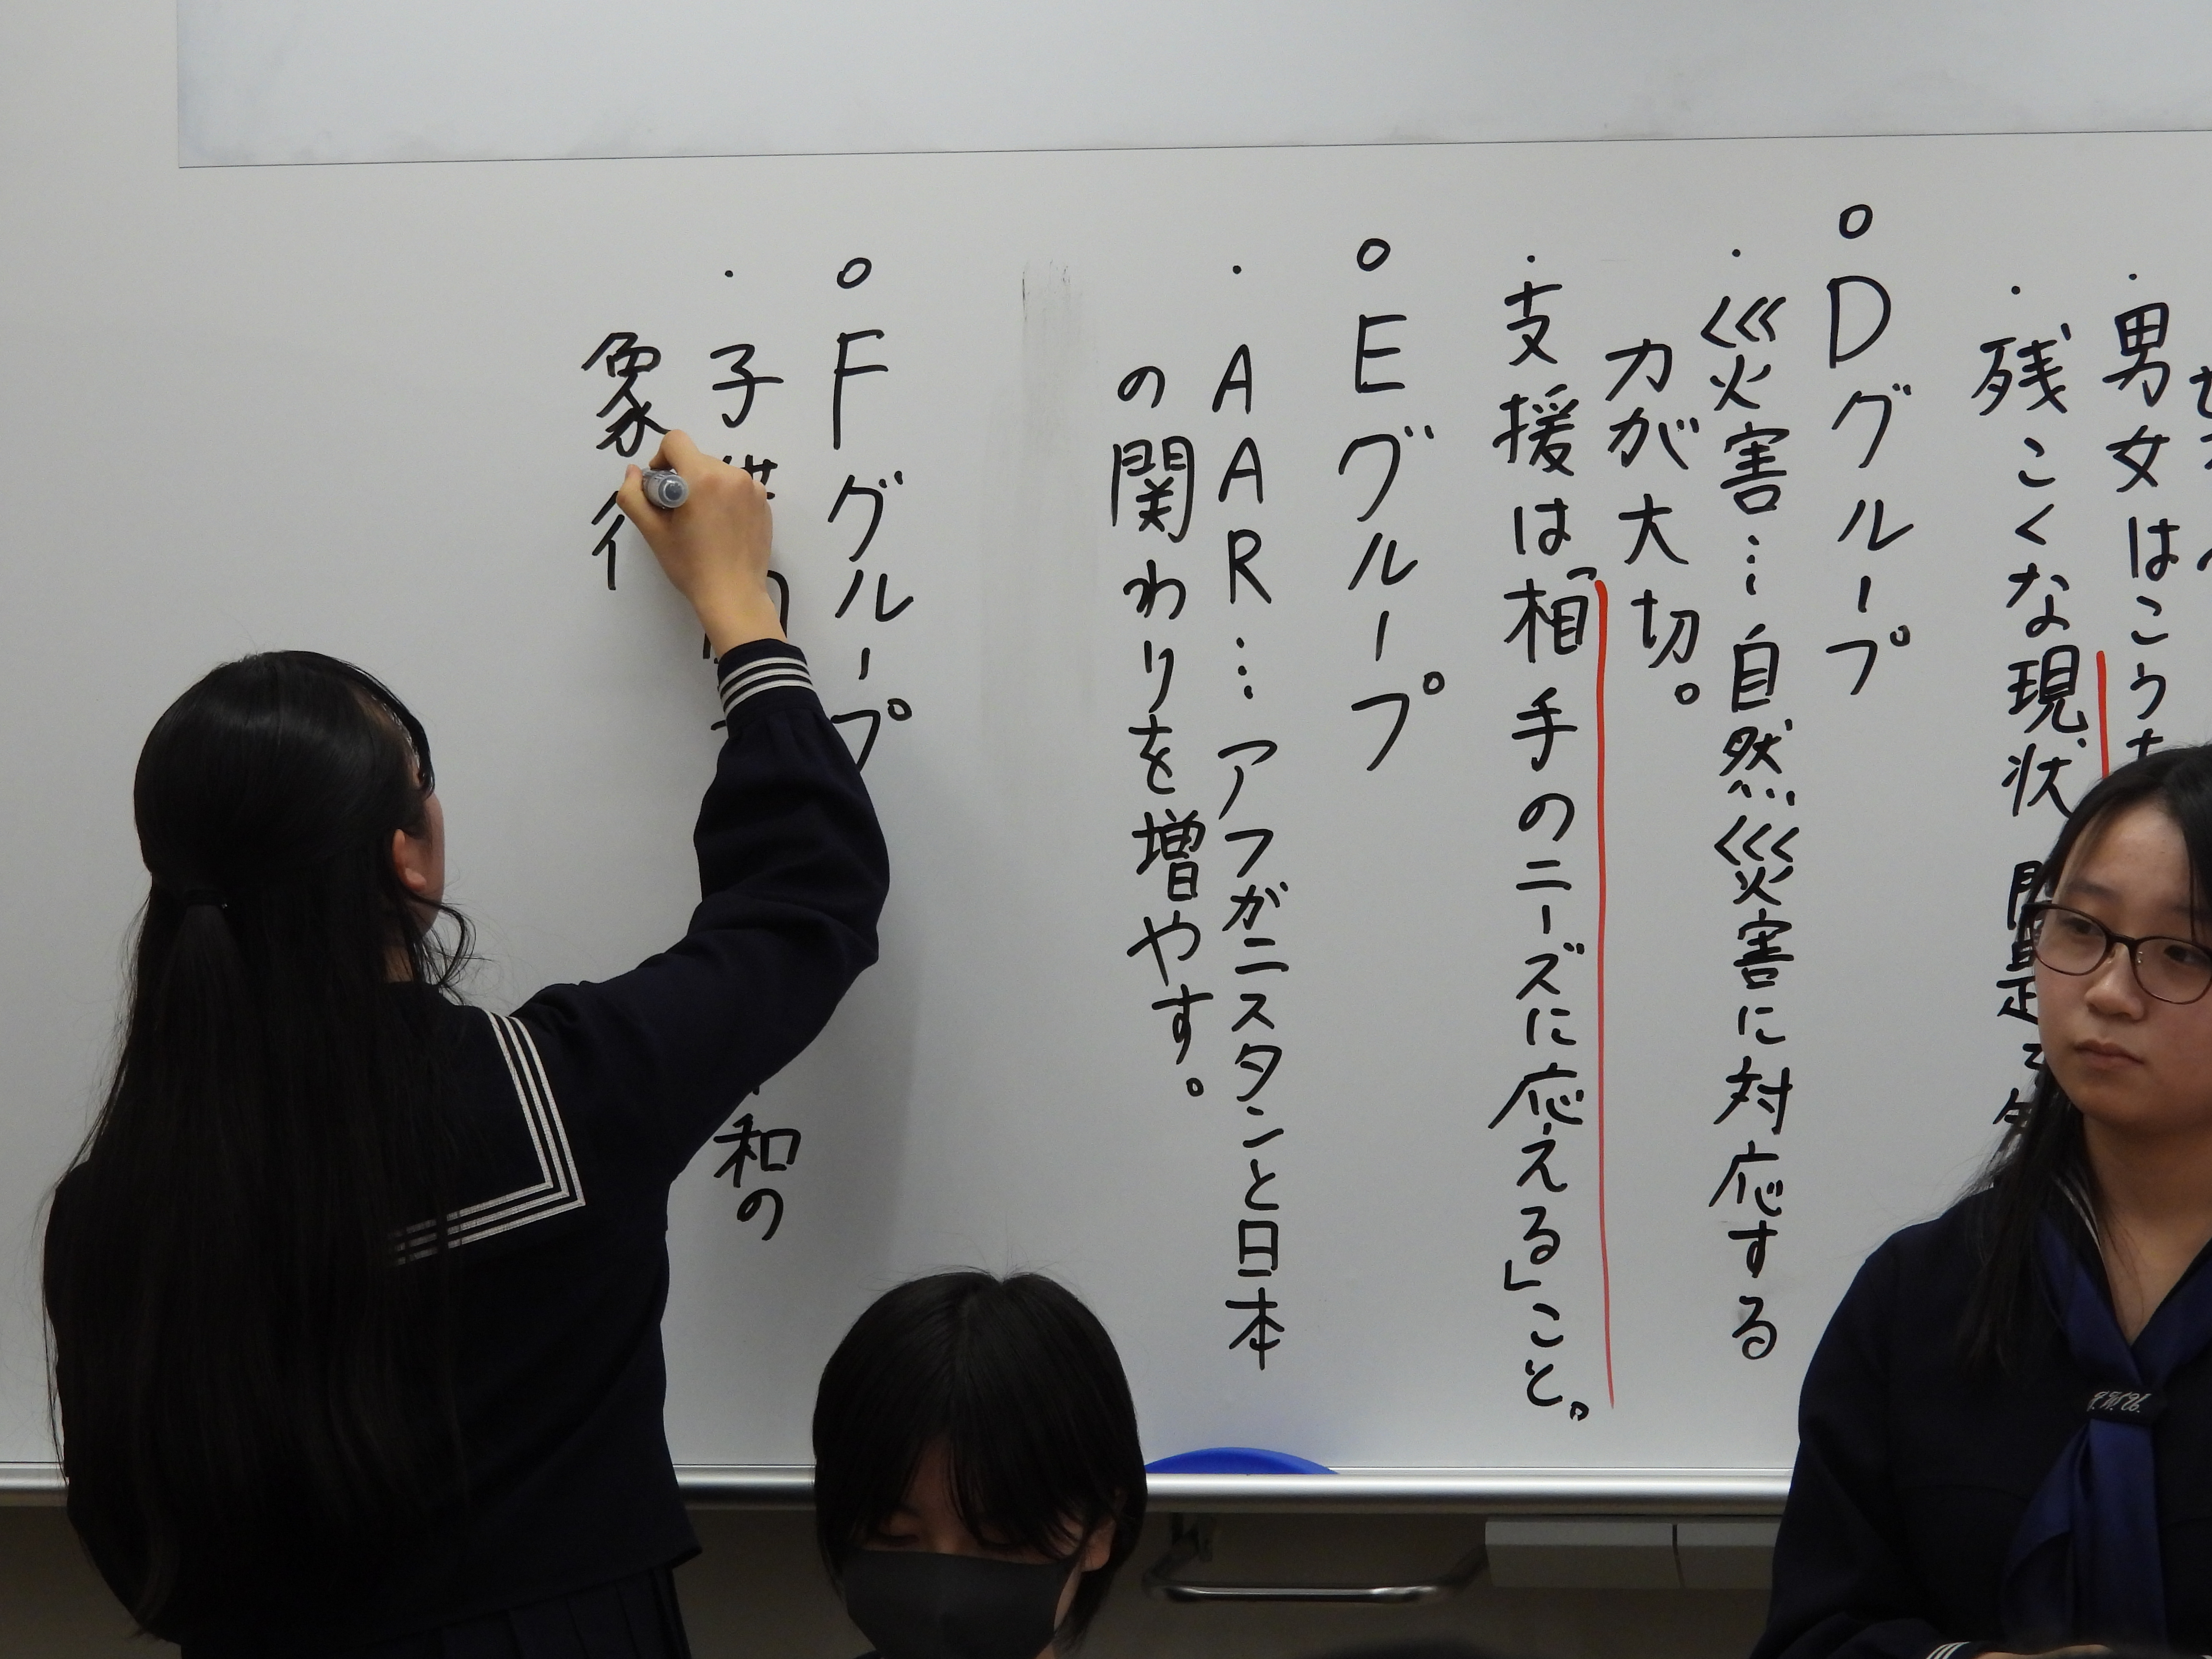 ・男女はこう
・残こくな現状
○Dグループ
・災害…自然災害に対応する
力が大切。
・支援は「相手のニーズに応える」こと。
○Eグループ
・AAR…アフガニスタンと日本
の関わりを増やす。
○Fグループ
・子供
和の
象